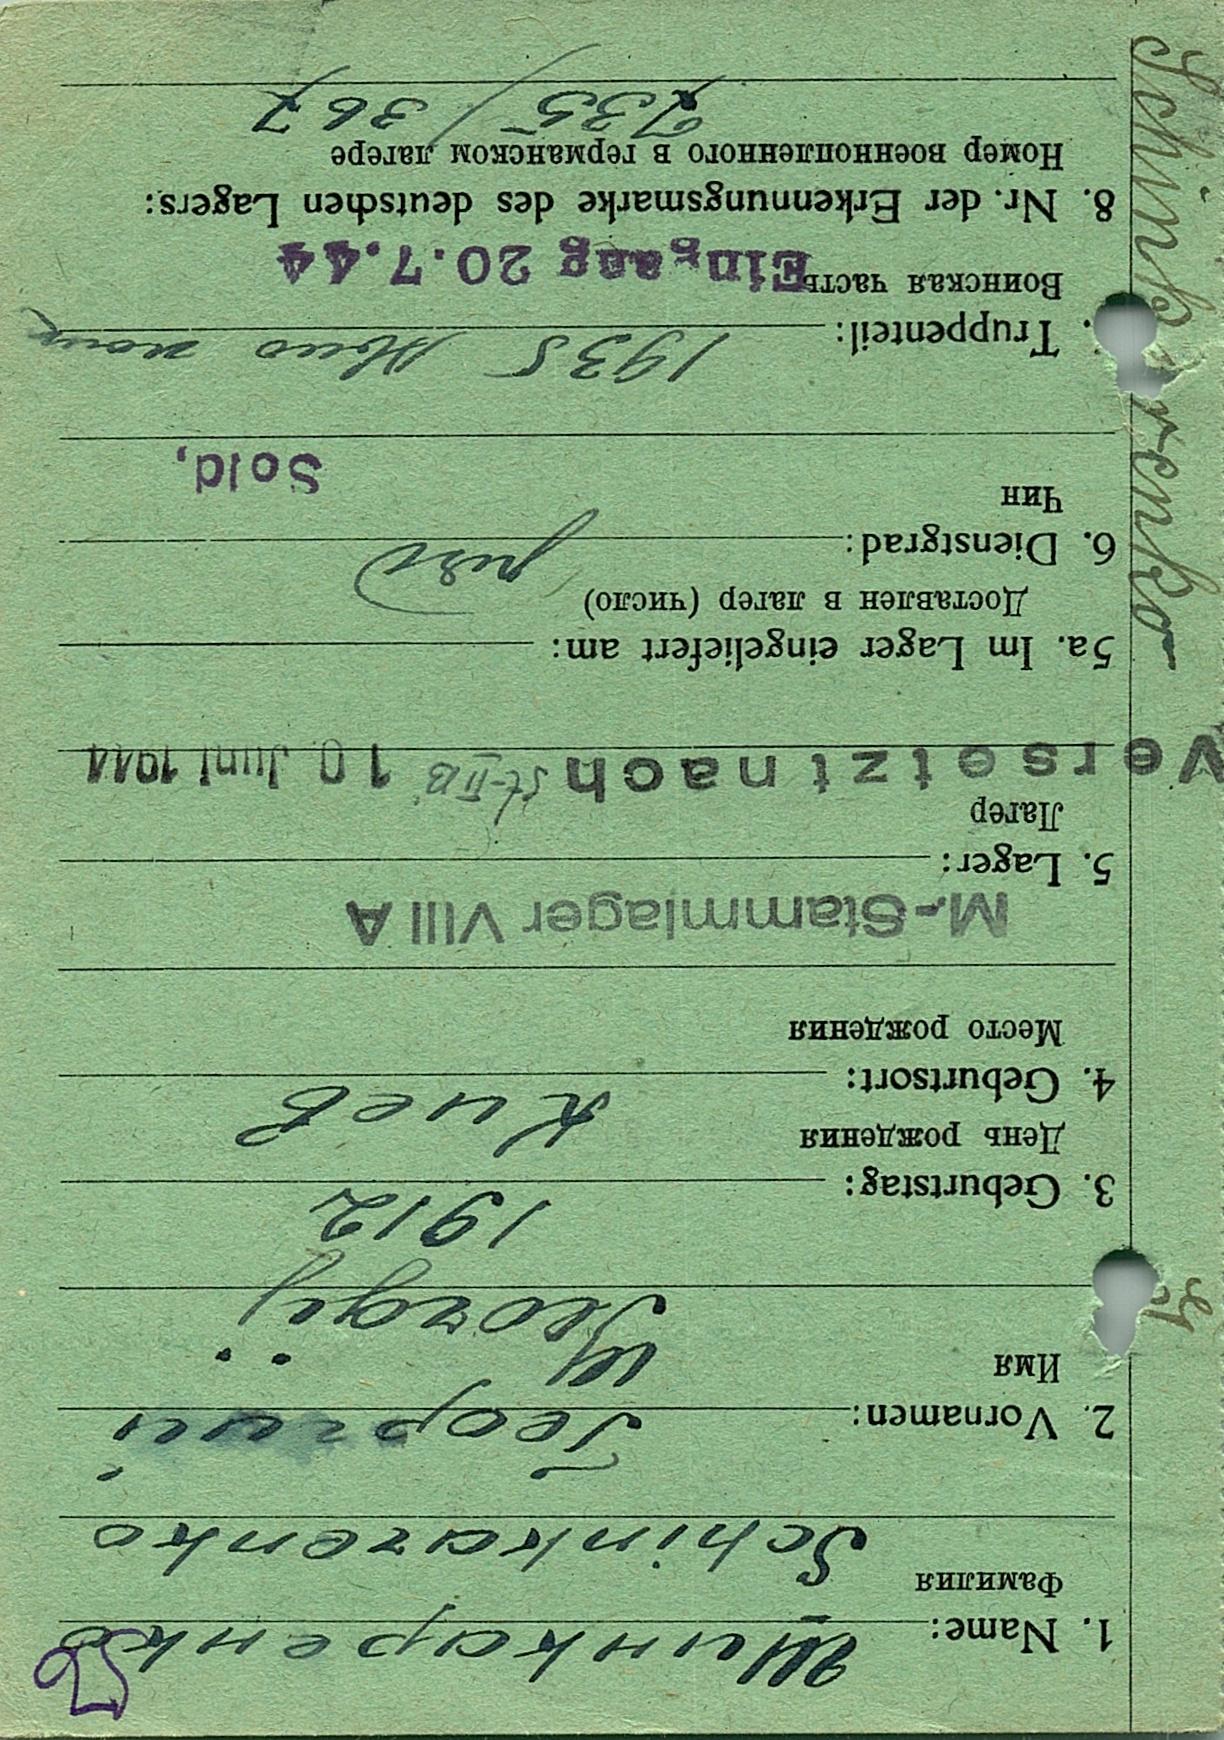 1. Name: Шинкаренко
Фамилия
Schinkarenko
2. Vornamen: Георгий
Имя
Georgij
1912
3. Geburtstag:
День рождения
Киев
4. Geburtsort:
Место рождения
M.-Stammlager VIII A
5. Lager:
Лагер
Versetzt nach St-II B 10. Juni 1944
5a. Im Lager eingeliefert am:
Доставлен в лагер (число)
6. Dienstgrad: ряд
Чин
Sold,
Truppenteil: 1935
Воинская часть Eingang 20.7.44
8. Nr. der Erkennungsmarke des deutschen Lagers:
Номер военнопленного в германском лагере
/ 367
Schinkarenko